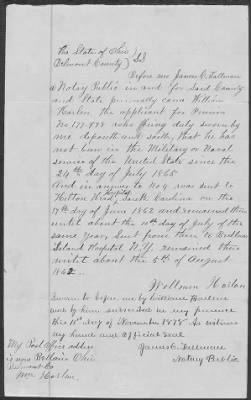 The State of Ohio
Belmont County } SS
Before me James C. Tallman
a Notary Public in and for Said County
and State personally came William
Harlan the applicant for Pension
No 177.978 who being duly sworn by
me deposeth and saith, that he has
not been in the Military or Naval
service of the United State since the
24th day of July 1865
And in answer to No 9 was sent to
Hilton Head, Hospital South Carolina on the
17th day of June 1862 and remained there
until about the day of July of the
same year, Sent from there to Bedloes
Island Hospital N.Y. remained there
until about the 5th of August
1862
William Harlan
Sworn to before me by William Harlan
and by him subscribed in my presence
this day of November 1878 As witness
my hand and official Seal
James C. Tallman
Notary Public
My Post Office address
is now Bellaire Ohio
Belmont Co
Wm Harlan